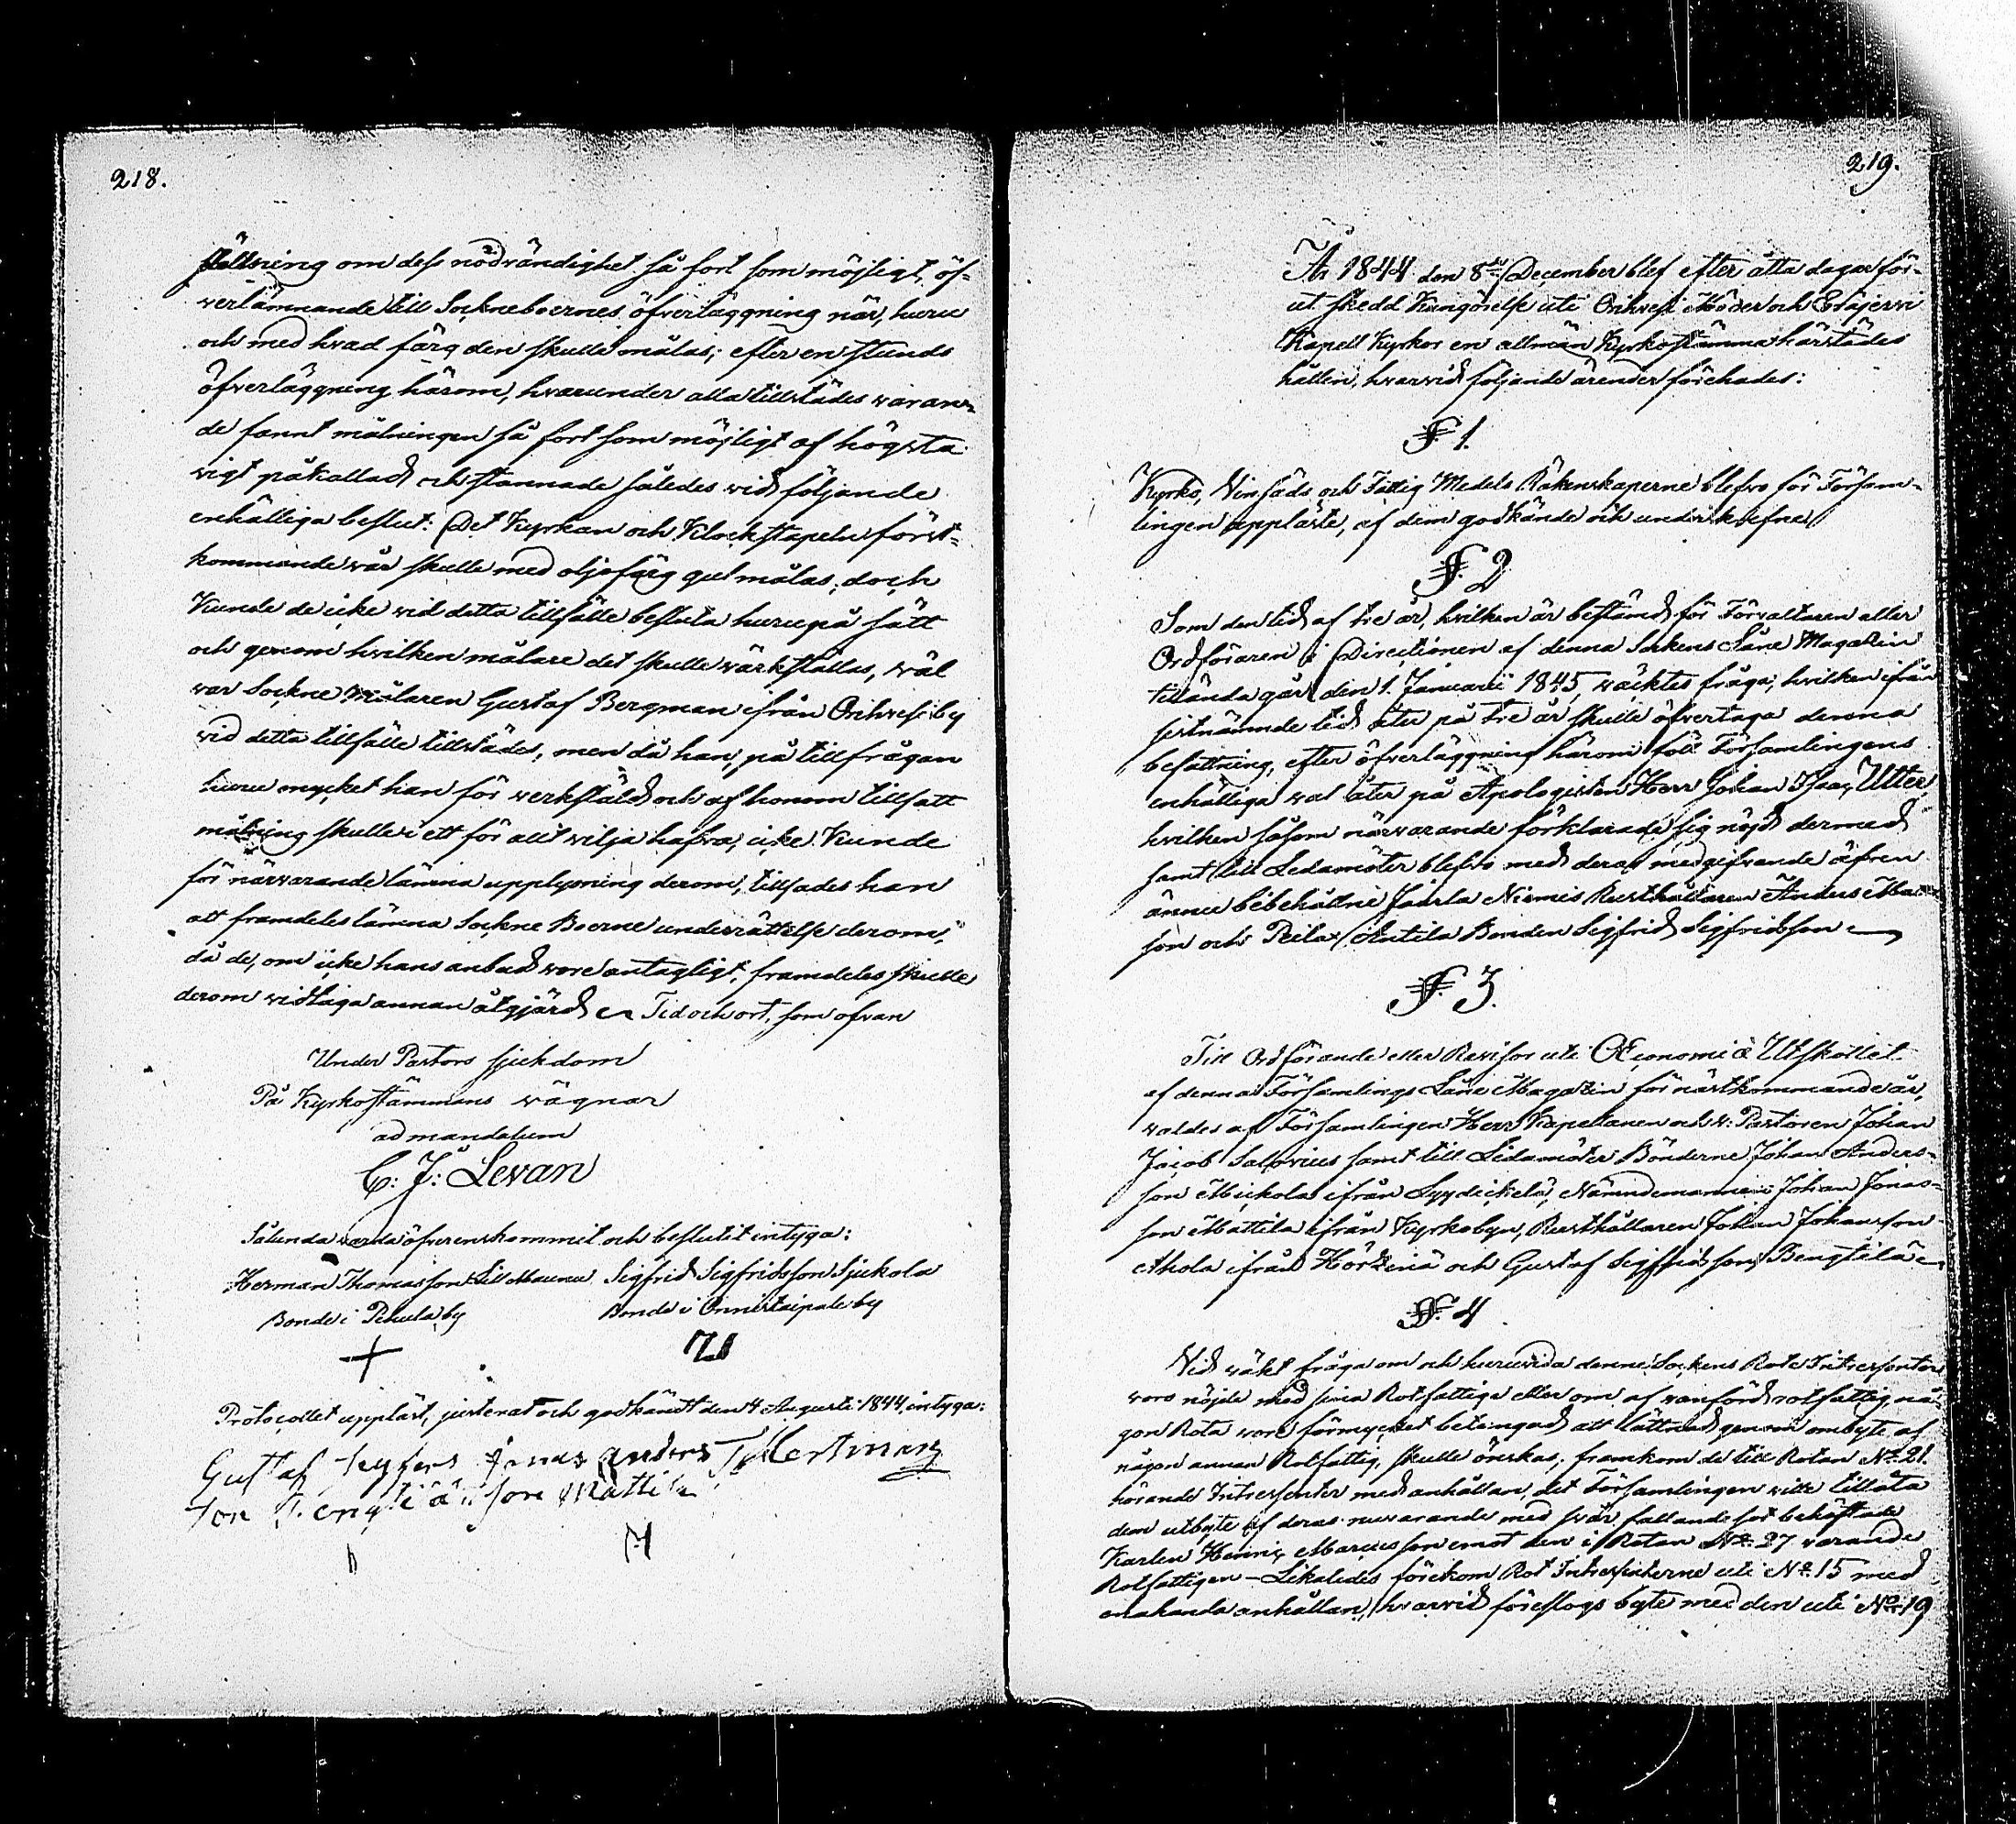 218.
ställning om dess nödvändighet så fort som möjligt, öf-
verlämnande till Sockneboernes öfverläggning när, huru
och med hvad färg den skulle målas; efter en stunds
öfverläggning härom, hvarunder alla tillstädes varan-
de fannt målningen så fort som möjligt af högsta
vigt påkallad och stannade således vid följande
enhälliga beslut: Det Kyrkan och Klockstapeln först-
kommande vår skulle med oljefärg gul målas, doch
Kunde de icke vid detta tillfälle besluta huru på sätt
och genom hvilken målare det skulle värkställas, wäl
var Sockne Målaren Gustaf Bergman ifrån Orihvesi by
vid detta tillfälle tillstädes, men då han, på tillfrågan
huru mycket han för verkställd och af honom tillsatt
målning skulle i ett för allt vilja hafva, icke Kunde
för närvarande lämna upplysning derom, tillsades han
att framdeles lämna Sockne Boerne underrättelse derom,
då de, om icke hans anbud vore antagligt, framdeles skulle
derom vidtaga annan åtgjärd Tid och ort, som ofvan
Under Pastors sjukdom
På Kyrkostämmans vägnar
ad mandatum
C: J: Levan
Sålunda varda öfverenskommit och beslutit intyga:
Herman Thomasson Lill Maunu Sigfrid Sigfridsson Sjukola
Bonde i Pehula by Bonde i Onnistaipale by
Protocollet uppläst, justerat och godkändt den 4 Augusti 1844, intyga:
Gustaf Jonas Anders
son Mattila
219.
År 1844 den 8de December blef efter åtta dagar för-
ut skedd Kungörelse uti Orihvesi Moder och Eräjervi
Kapell Kyrkor en allmän Kyrkostämma härstädes
hållen, hvarvid följande ärender förehades:
§ 1.
Kyrko, Vinsäds och Fattig Medels Räkenskaperne blefvo för Försam-
lingen uppläste, af dem godkände och underskrefne
§. 2
Som den tid af tre år, hvilken är bestämd för Förvaltaren eller
Ordföraren i Directionen af denna Sockens Låne Magazin
tilländagår den 1. Januarii 1845, väcktes fråga, hvilken ifrån
sistnämnde tid åter på tre år skulle öfvertaga denna
befattning, efter öfverläggning härom föll Församlingens
enhälliga val åter på Apologisten Herr Johan Isaac Utter,
hvilken såsom närvarande förklarade sig nöjd dermed
samt till Ledamöter blefvo med deras medgifvande äfven
ännu bibehållne Jäärla Niemis Rusthållaren Anders
son och Peila Antila Bonden Sigfrid Sigfridsson
§. 3.
Till Ordförande eller Revisor uti Œconomiæ Utskottet
af denna Församlings Låne Magazin för nästkommande år,
valdes af Församlingen Herr Kapellanen och v: Pastoren Johan
Jacob Salovius samt till Ledamöter Bönderne Johan Anders-
son Mickola ifrån Lyydickelä, Nämndemannen Johan Jonas-
son Mattila ifrån Kyrkobyn, Rusthållaren Johan Johansson
Ahola ifrån och Gustaf Sigfridsson Bengtilä
§. 4
Vid väkt fråga om och huruvida denne Sockens Rote Intressenter
voro nöjde med sina Rotfattiga eller om af vanförd rotfattig, nå-
gon Rota vore förmycket betungad att lättnad genom ombyte af
någon annan Rotfattig, skulle önskas, framkom de till Rotan No 21.
hörande Intressenter med anhållan, det Församlingen ville tillåta
dem utbyte af deras nuvarande med svår behäftade
Karlen Henric Marcusson emot den i Rotan No 27 varande
Rotfattigen – Likaledes förekom Rot Intressenterne uti No 15 med
enahanda anhållan, hvarvid föreslogs byte med den uti No 19